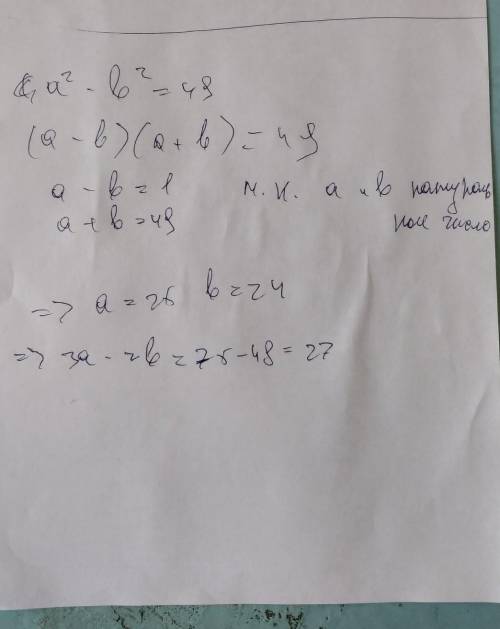 a² - b² = 49
(a - b)(a + b) = 49
a - b = 1 т.к. a и b натураль
a + b = 49 ное число
=> a = 25 b = 24
=> 3a - 2b = 75 - 48 = 27